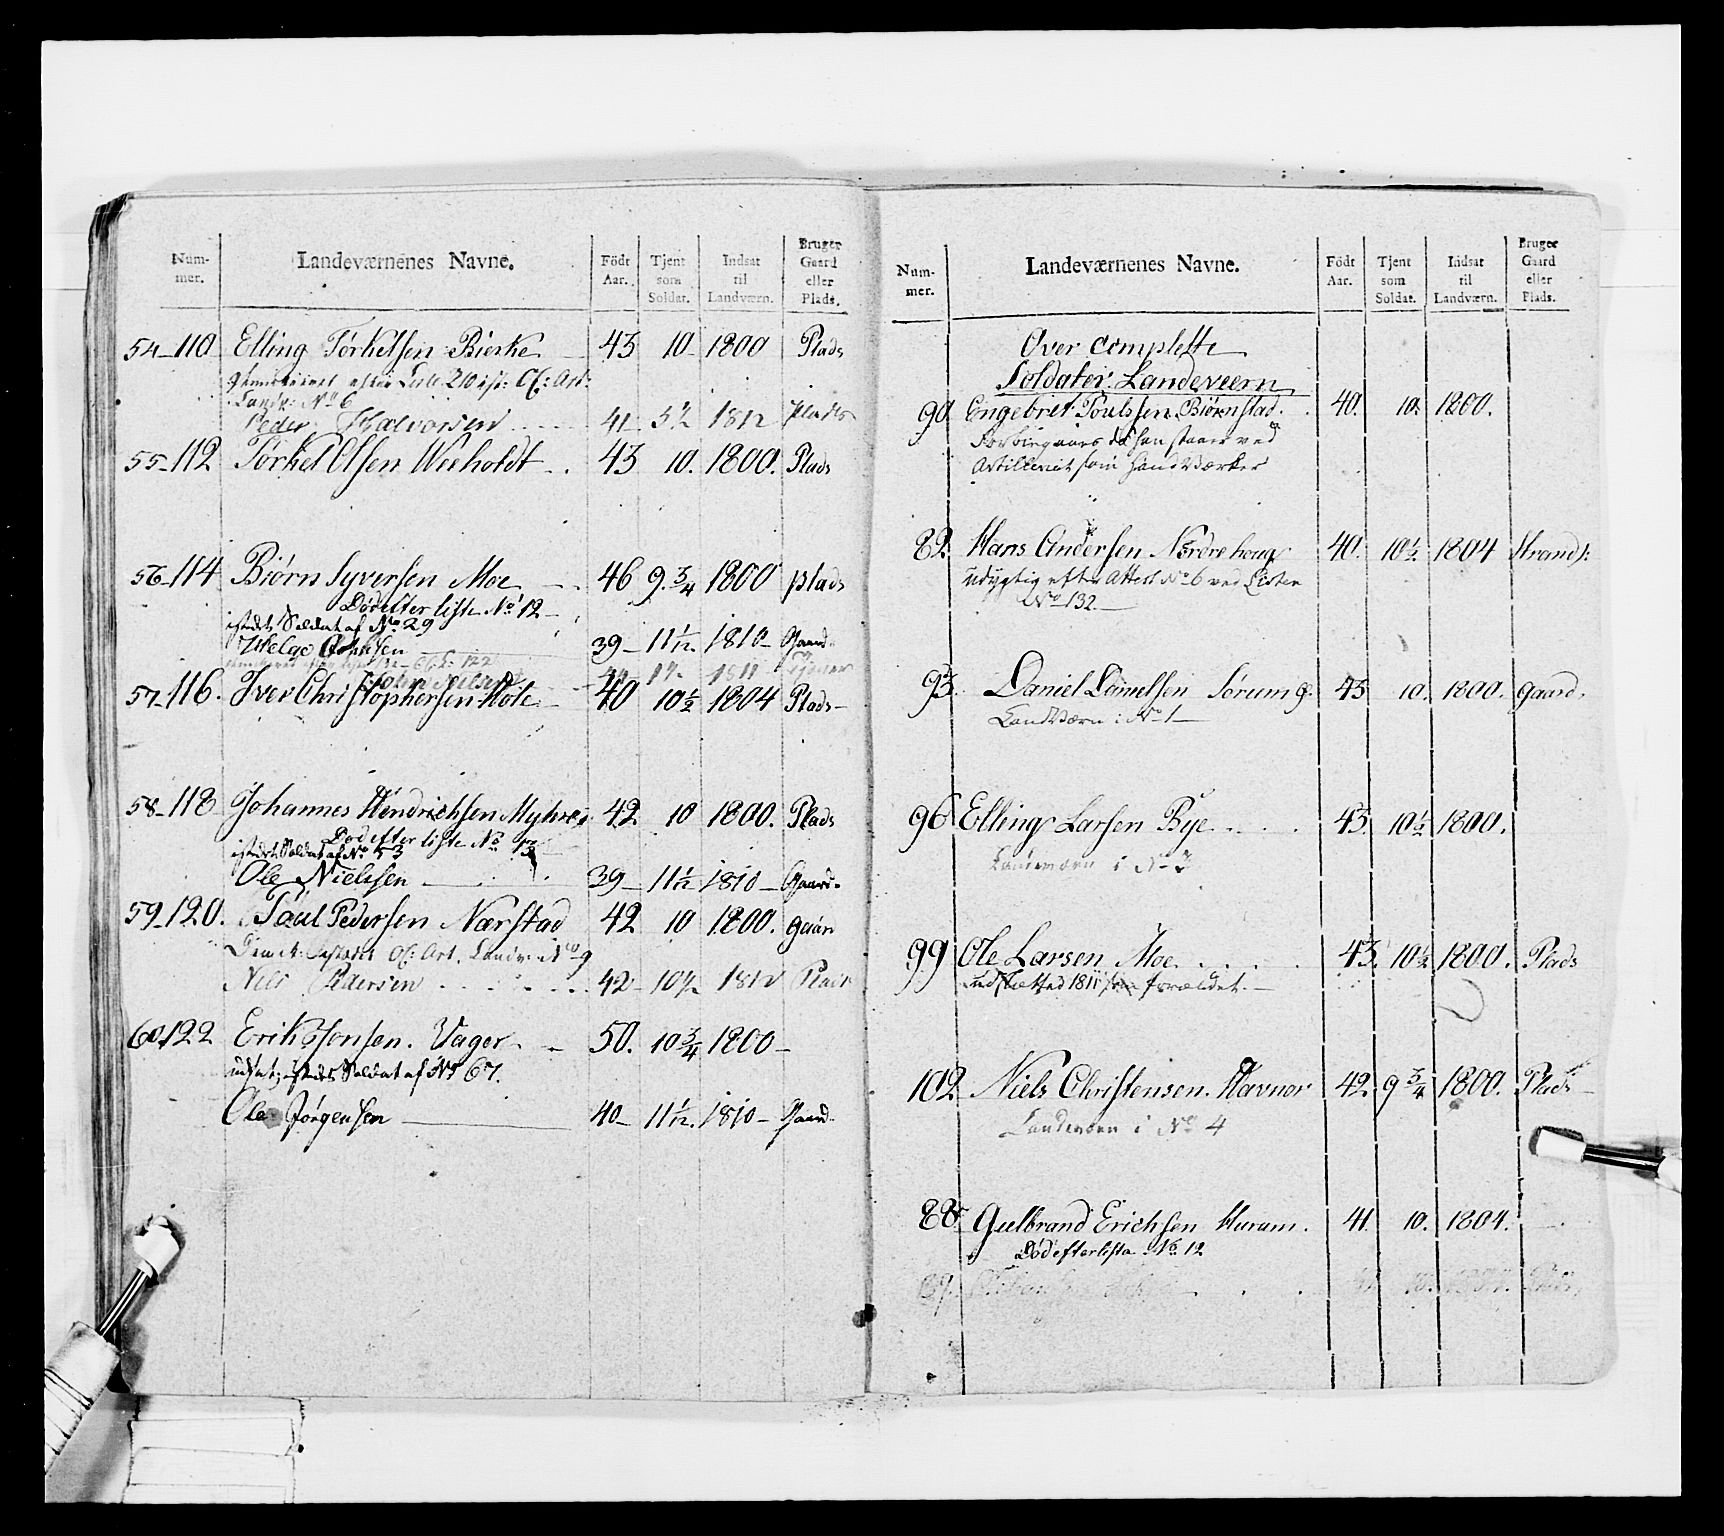 Num-
mer.
Landeværnenes Navne.
Födt
Aar.
Tjent
som
Soldat.
Indsat
til
Landværn.
Bruger
Gaard
eller
Plads.
54-110 Elling Torkelsen Bierke 43 10 1800 Plads
Landv: No 6
Peder Halvorsen 41 5½ 1812 Plads
55-112 Torkel Olsen Weeholdt 43 10. 1800. Plads
56-114 Biørn Syversen Moe 46 9.¾ 1800 Plads
Død efter liste No 12
istedet Soldat af No 29
Helge 39 11 1/12. 1810 Gaard
1811
57-116. Iver Christophersen Hole 40 10½ 1804 Plads
58-118 Johannes Hendrichsen Myhre 42 10 1800. Plads
Død efter liste No 13
istedet Soldat af No 53
Ole Nielsen 39 11 1/12 1810 Gaard
59-120. Paul Pedersen Nærstad 42 10 1800. Gaar
Art. Landv. No 9
Nels Pedersen 42 10½ 1812 Plads
60.122 Erik Jonsen. Vager 50. 10¾ 1800
udsat; istedet Soldat af No 67.
Ole Jørgensen 40 11 1/12. 1810 Gaard
Num-
mer.
Landeværnenes Navne.
Födt
Aar.
Tjent
som
Soldat.
Indsat
til
Landværn.
Bruger
Gaard
eller
Plads.
Over complette
Soldater. Landeveern
90. Engebret Poulssen Biørnstad. 40. 10. 1800.
Forbigaaes da han staaer ved
Artilleriet som Handværker
82. Hans Andersen Nordre houg 40. 10½ 1804 Strands:
udygtig efter Attest No 6 ved Listen
No 132
93. Daniel Danielsen Sørum g. 43 10. 1800. Gaard.
Landværn i No 1
96 Elling Larsen Bye 43 10½ 1800.
Landeværn i No 3
99 Ole Larsen Moe 43. 10½ 1800. Plads
udslættet 1811 som forældet.
102. Niels Christensen. Havnor 42. 9¾ 1800. Plads
Landeværn i No 4
88. Gulbrand Erichsen Hurum. 41. 10. 1804.
Død efter lista No 12